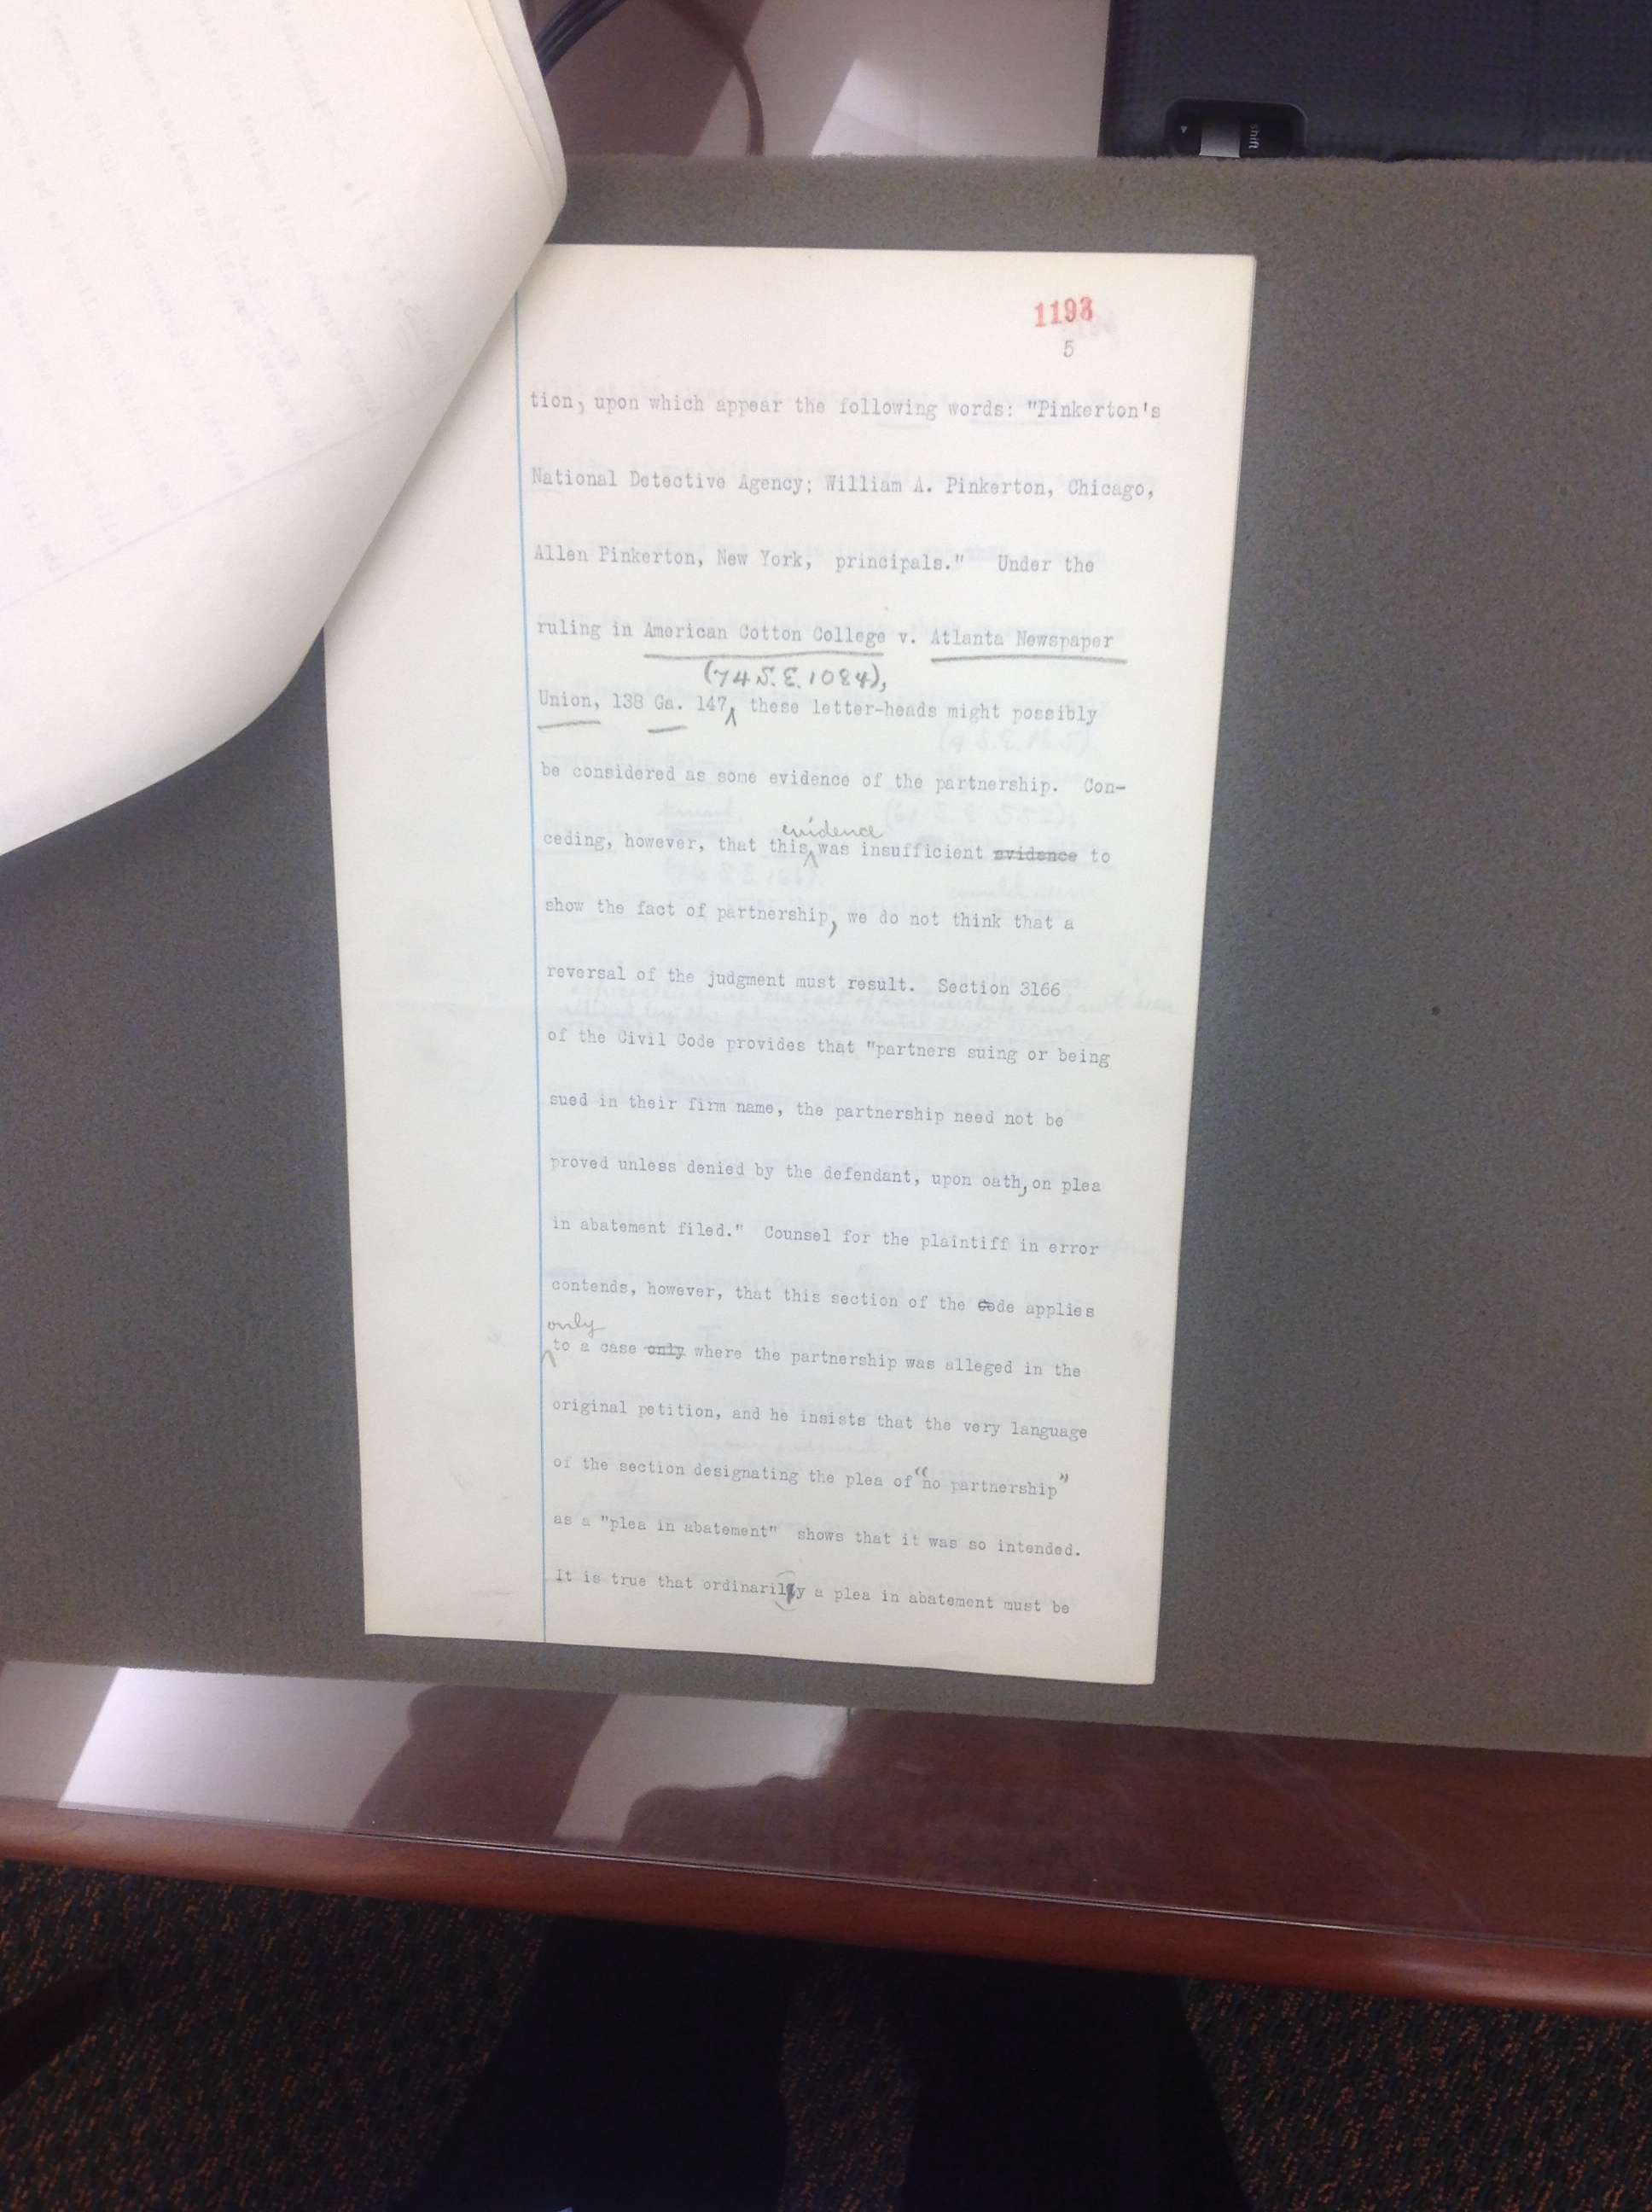 shift
1193
5
tion, upon which appear the following words: "Pinkerton's
National Detective Agency; William A. Pinkerton, Chicago,
Allen Pinkerton, New York, principals." Under the
ruling in American Cotton College v. Atlanta Newspaper
(74 S.E. 1084),
Union, 138 Ga. 147 these letter-heads might possibly
be considered as some evidence of the partnership. Con-
evidence
ceding, however, that this was insufficient evidence to
show the fact of partnership, we do not think that a
reversal of the judgment must result. Section 3166
of the Civil Code provides that "partners suing or being
sued in their firm name, the partnership need not be
proved unless denied by the defendant, upon oath, on plea
in abatement filed." Counsel for the plaintiff in error
contends, however, that this section of the Code applies
only
to a case only where the partnership was alleged in the
original petition, and he insists that the very language
of the section designating the plea of "no partnership"
as a "plea in abatement" shows that it was so intended.
It is true that ordinarily a plea in abatement must be